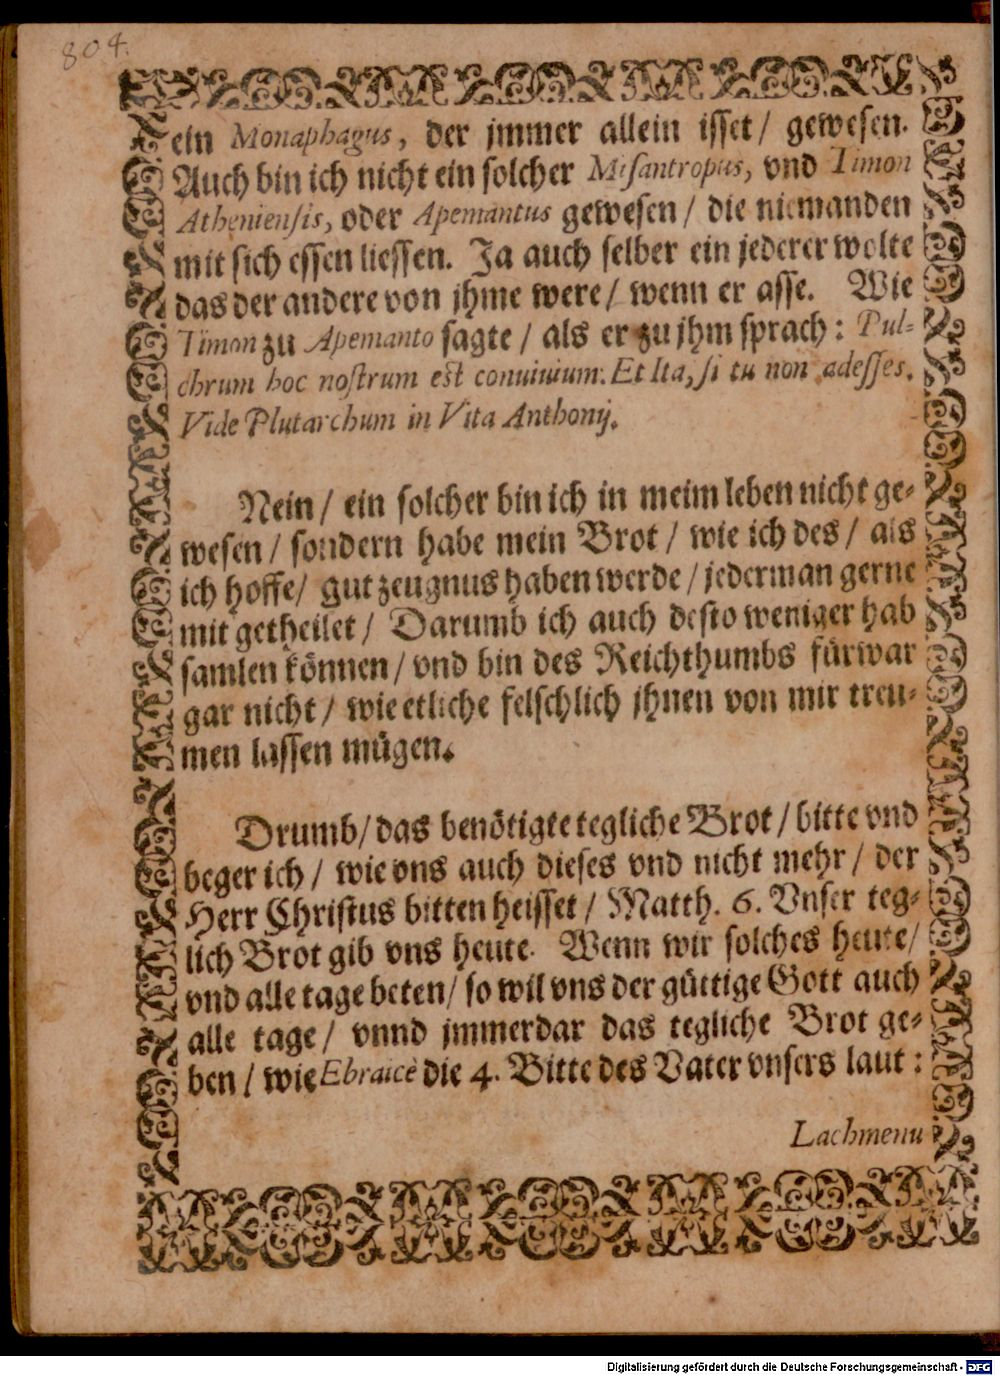 804.
ein Monaphagus, der jmmer allein isset/ gewesen.
Auch bin ich nicht ein solcher Misantropus, vnd Timon
Atheniensis, oder Apemantus gewesen/ die niemanden
mit sich essen liessen. Ja auch selber ein jederer wolte
das der andere von jhme were/ wenn er asse. Wie
Timon zu Apemanto sagte/ als er zu jhm sprach: Pul-
chrum hoc nostrum est conuiuium: Et Ita, si tu non adesses.
Vide Plutarchum in Vita Anthonij.
Nein/ ein solcher bin ich in meim leben nicht ge-
wesen/ sondern habe mein Brot/ wie ich des/ als
ich hoffe/ gut zeugnus haben werde/ jederman gerne
mit getheilet/ Darumb ich auch desto weniger hab
samlen können/ vnd bin des Reichthumbs fürwar
gar nicht/ wie etliche felschlich jhnen von mir treu-
men lassen mügen.
Drumb/ das benötigte tegliche Brot/ bitte vnd
beger ich/ wie vns auch dieses vnd nicht mehr/ der
Herr Christus bitten heisset/ Matth. 6. Vnser teg-
lich Brot gib vns heute. Wenn wir solches heute/
vnd alle tage beten/ so wil vns der güttige Gott auch
alle tage/ vnnd jmmerdar das tegliche Brot ge-
ben/ wie Ebraicè die 4. Bitte des Vater vnsers laut:
Lachmenu
Digitalisierung gefördert durch die Deutsche Forschungsgemeinschaft - DFG